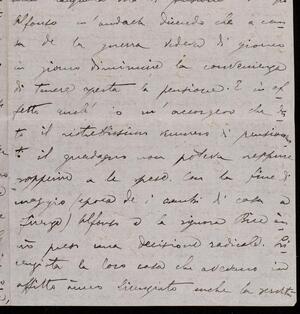 Alfonso m'andava dicendo che a cau-
sa della guerra vedeva di giorno
in giorno diminuire la convenienza
di tenere aperta la pensione. E in ef-
fetti anch'io m'accorgevo che da-
to il ristrettissimo numero di pensionan-
ti il guadagno non poteva neppure
sopperire a le spese. Con la fine di
maggio (epoca de i cambi di casa a
Firenze) Alfonso e la signora Bice àn-
no preso una decisione radicale. Li-
cenziata la loro casa che avevano in
affitto ànno licenziato anche la